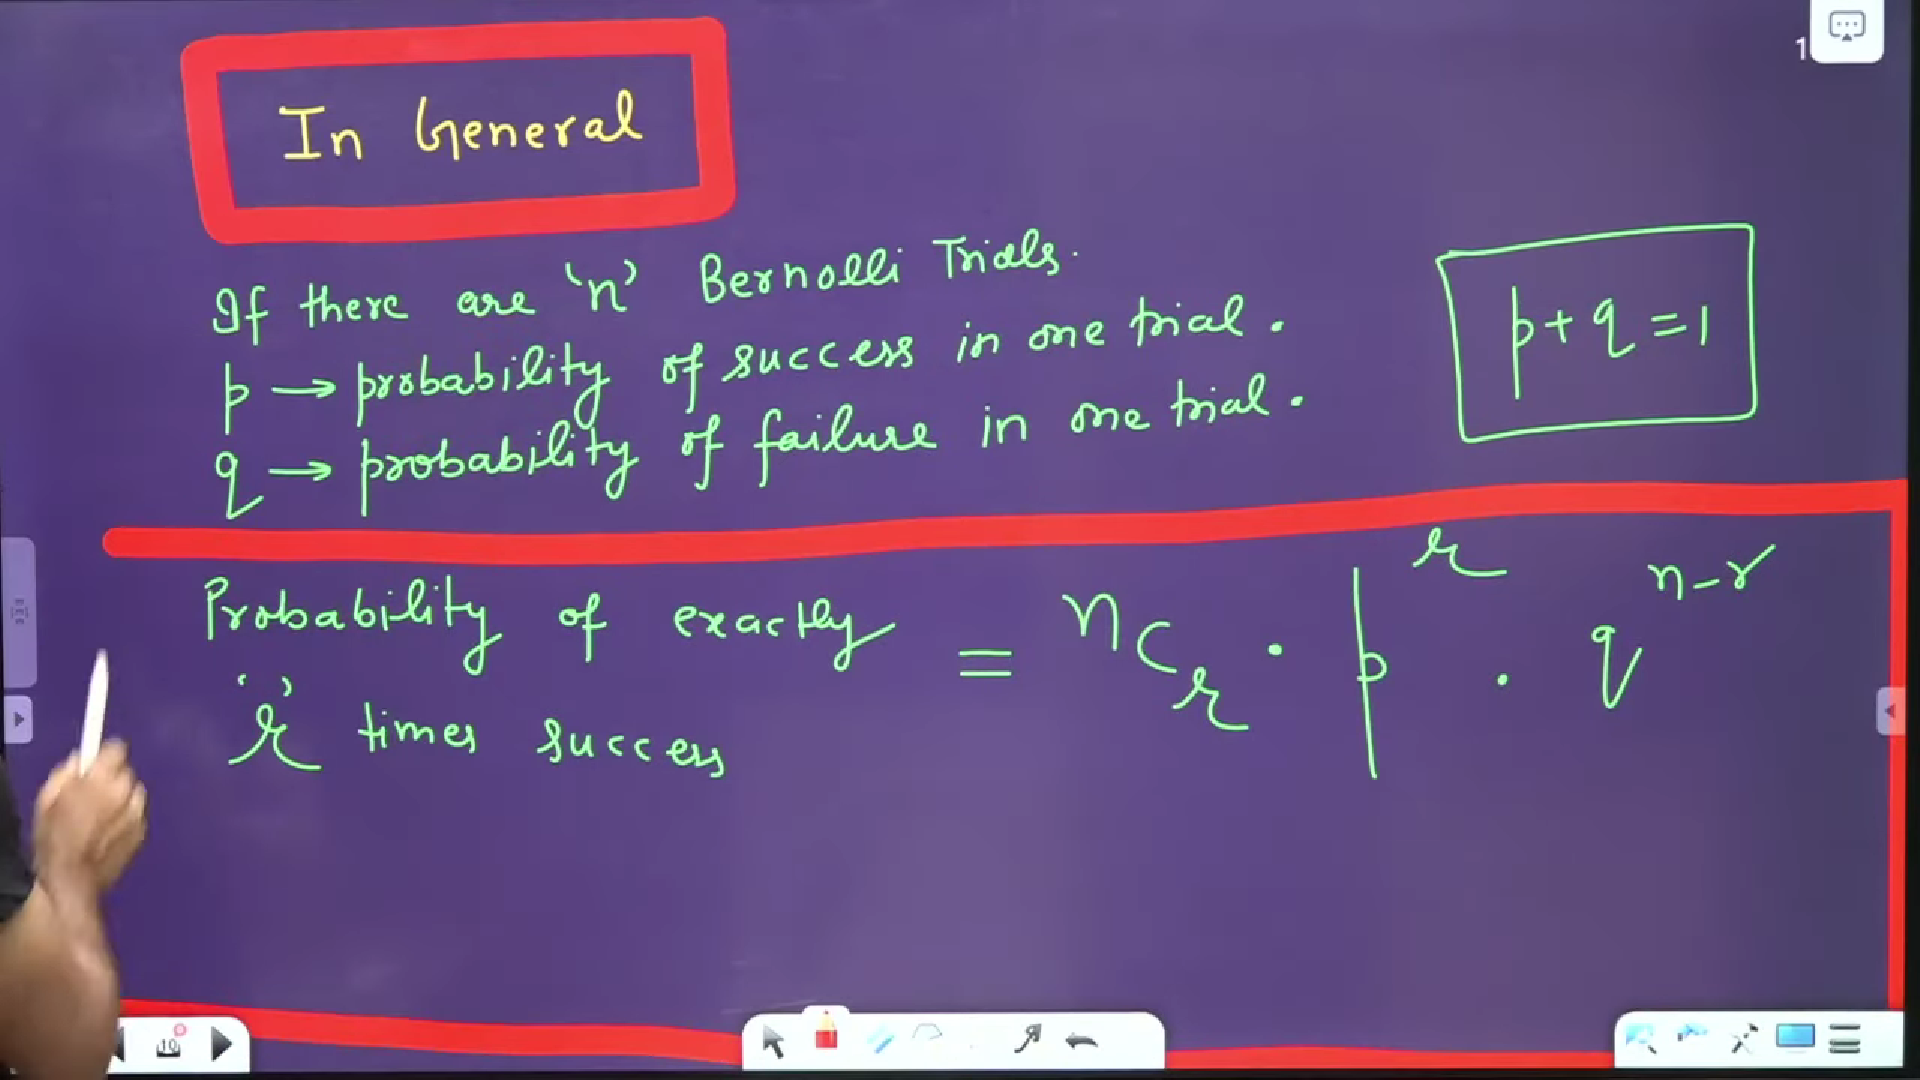 1
In General
If there are 'n' Bernolli Trials.
p → probability of success in one trial.
q → probability of failure in one trial.
p + q = 1
Probability of exactly
'r' times success
= nCr . p^r . q^n-r
10